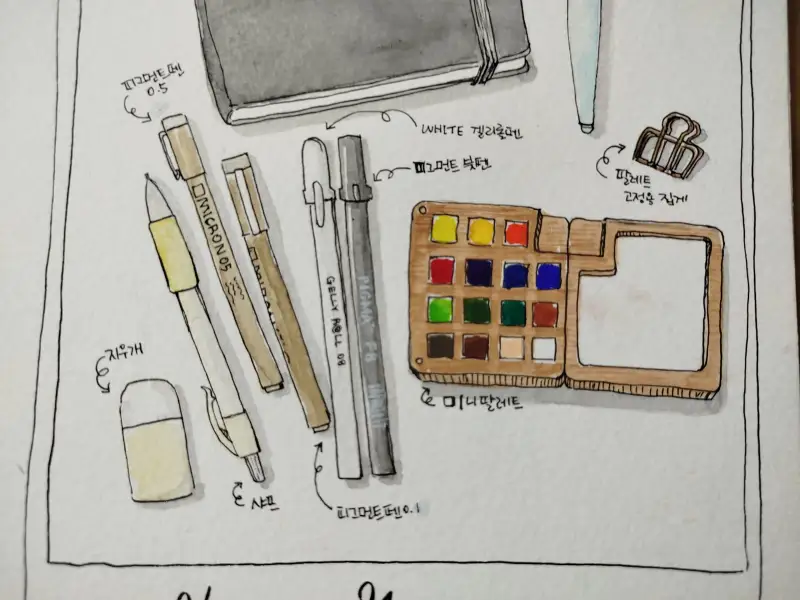 피그먼트펜
0.5
WHITE 겔리롤펜
피그먼트 붓펜
팔레트
고정용 집게
MICRON 05
GELLY ROLL 08
PIGMA FB
지우개
미니팔레트
샤프
피그먼트펜 0.1